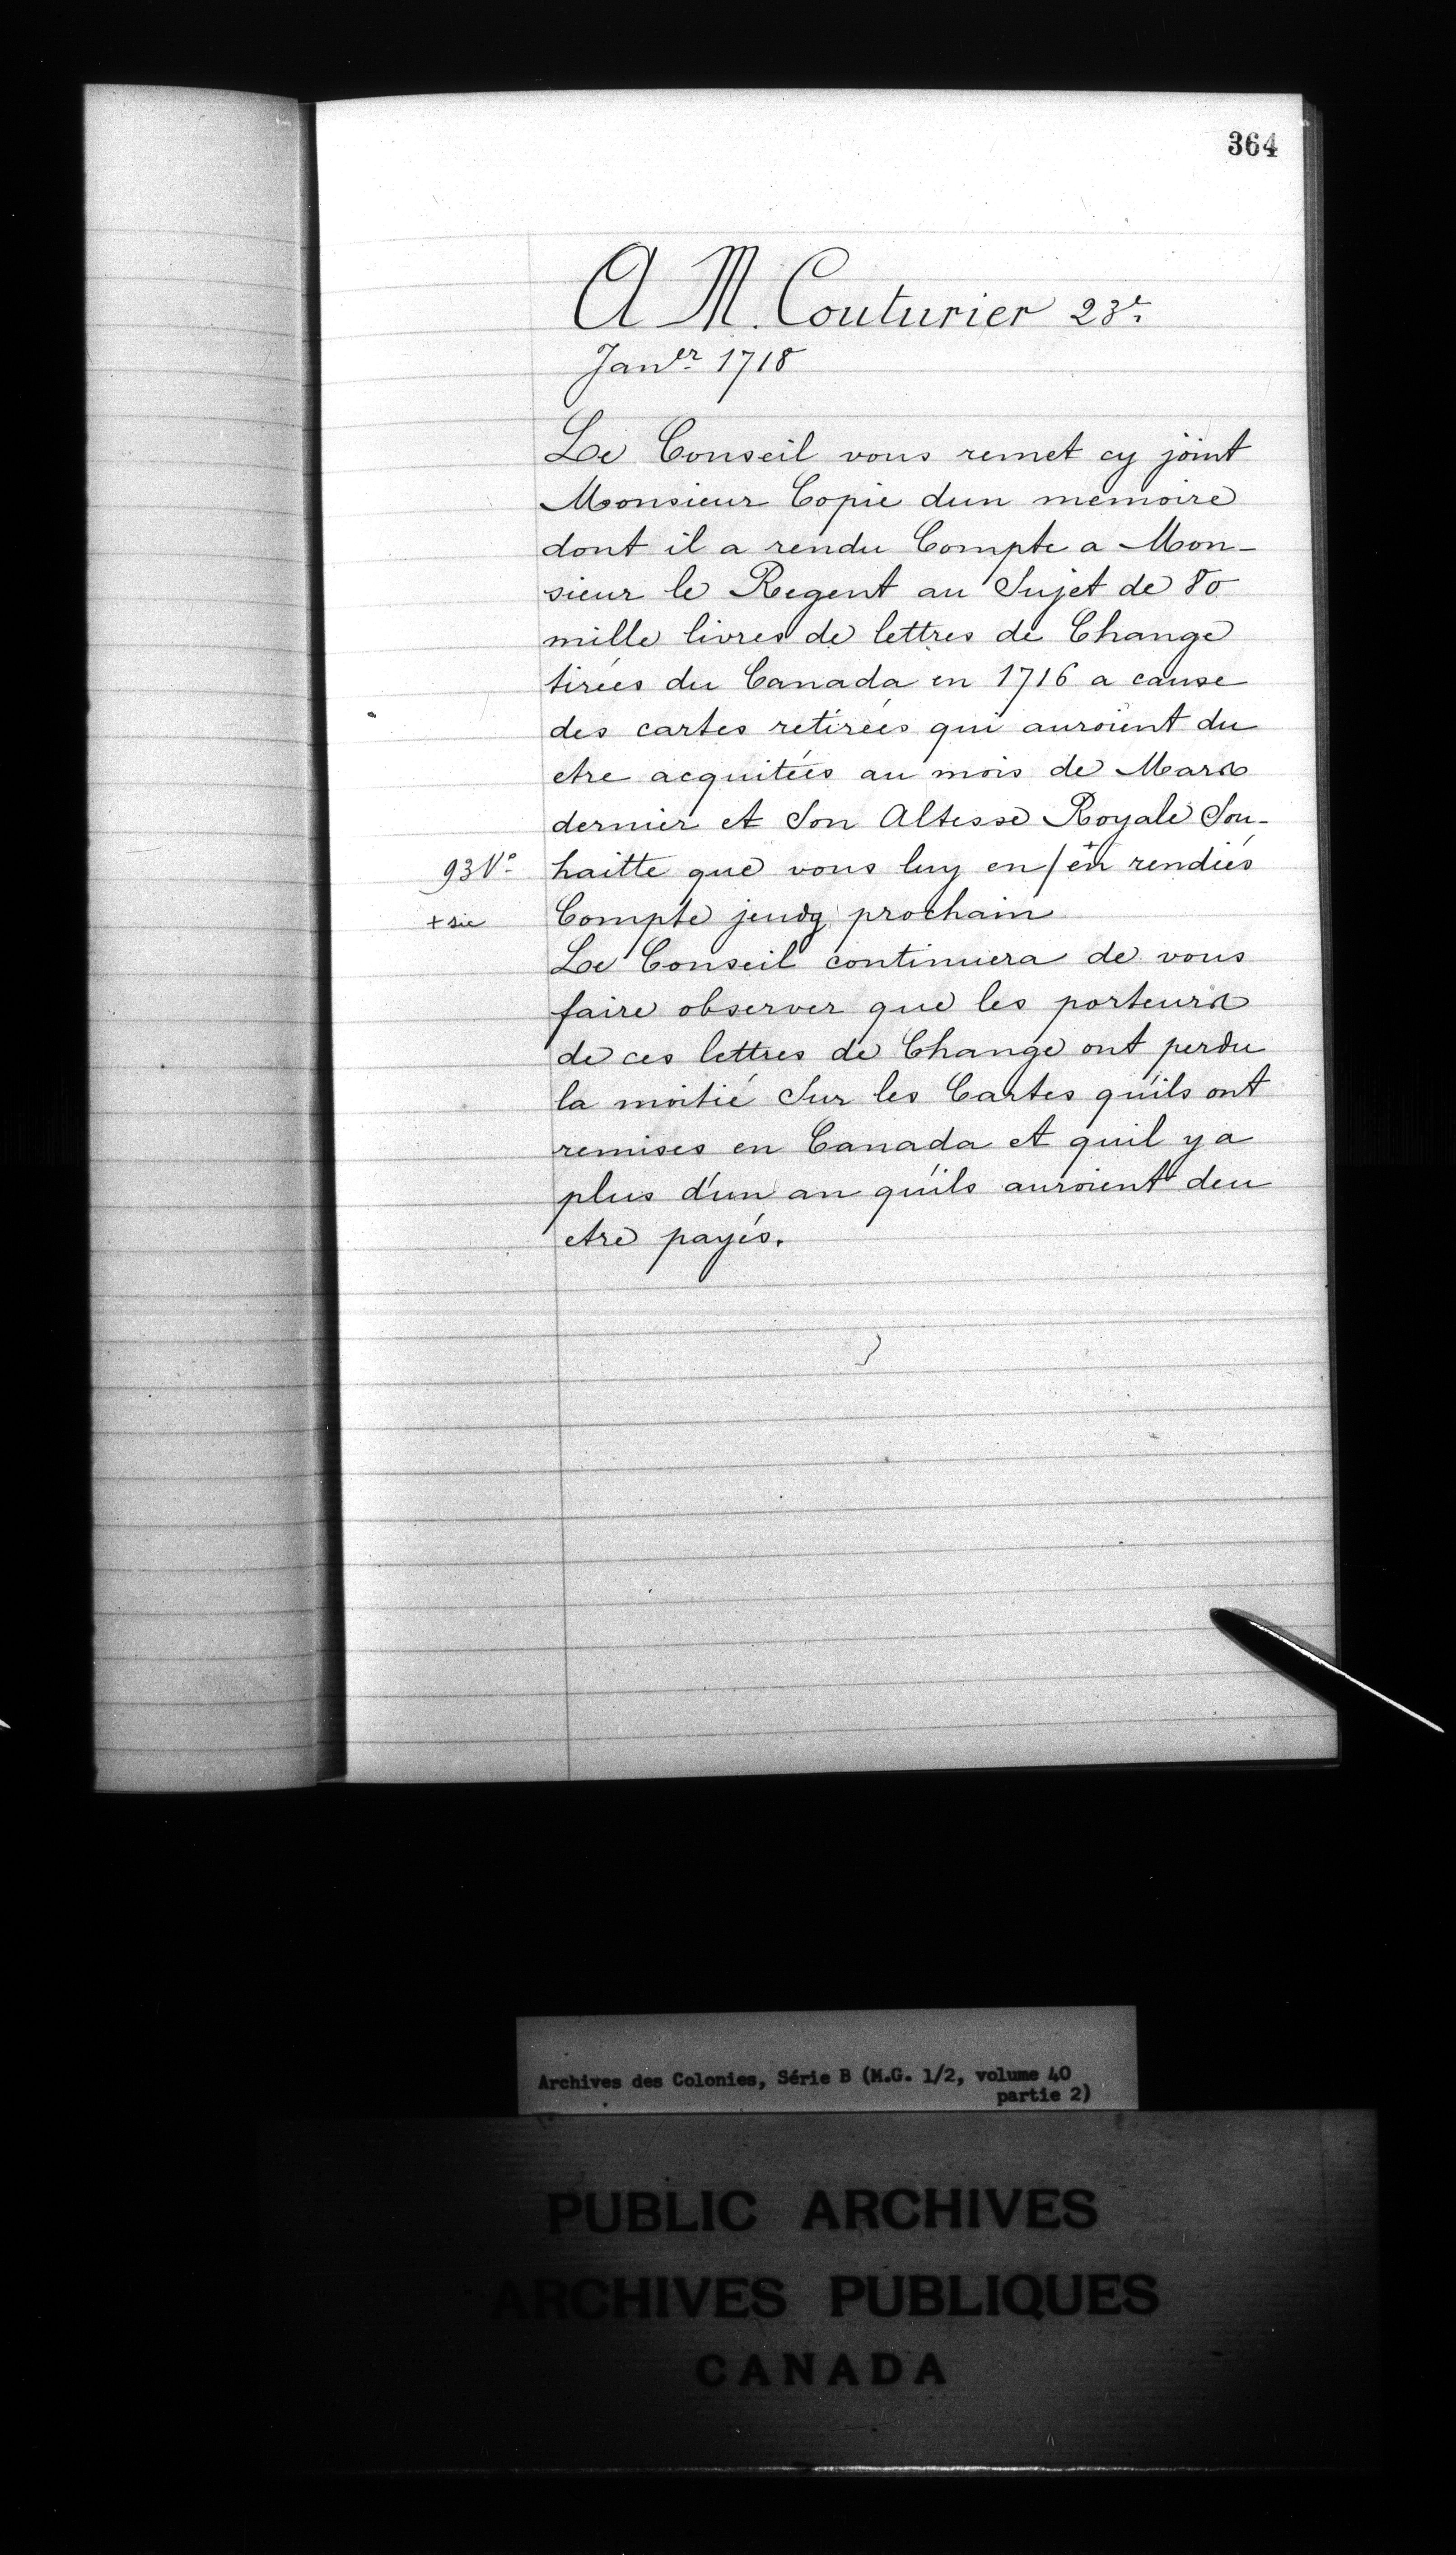 364
A M. Couturier 23e
Janer 1718
Le Conseil vous remet cy joint
Monsieur Copie dun memoire
dont il a rendu Compte a Mon-
sieur le Regent au Sujet de 80
mille livres de lettres de Change
tirées du Canada en 1716 a cause
des cartes retirées qui auroient du
etre acquitées au mois de Mars
dernier et Son Altesse Royale Sou-
93 Vo haitte que vous luy en / + en rendiés
+ sic Compte jeudy prochain
Le Conseil continuera de vous
faire observer que les porteurs
de ces lettres de Change ont perdu
la moitié Sur les Cartes qu'ils ont
remises en Canada et quil y a
plus d'un an qu'ils auroient deu
etre payés.
Archives des Colonies, Série B (M.G. 1/2, volume 40
partie 2)
PUBLIC ARCHIVES
ARCHIVES PUBLIQUES
CANADA